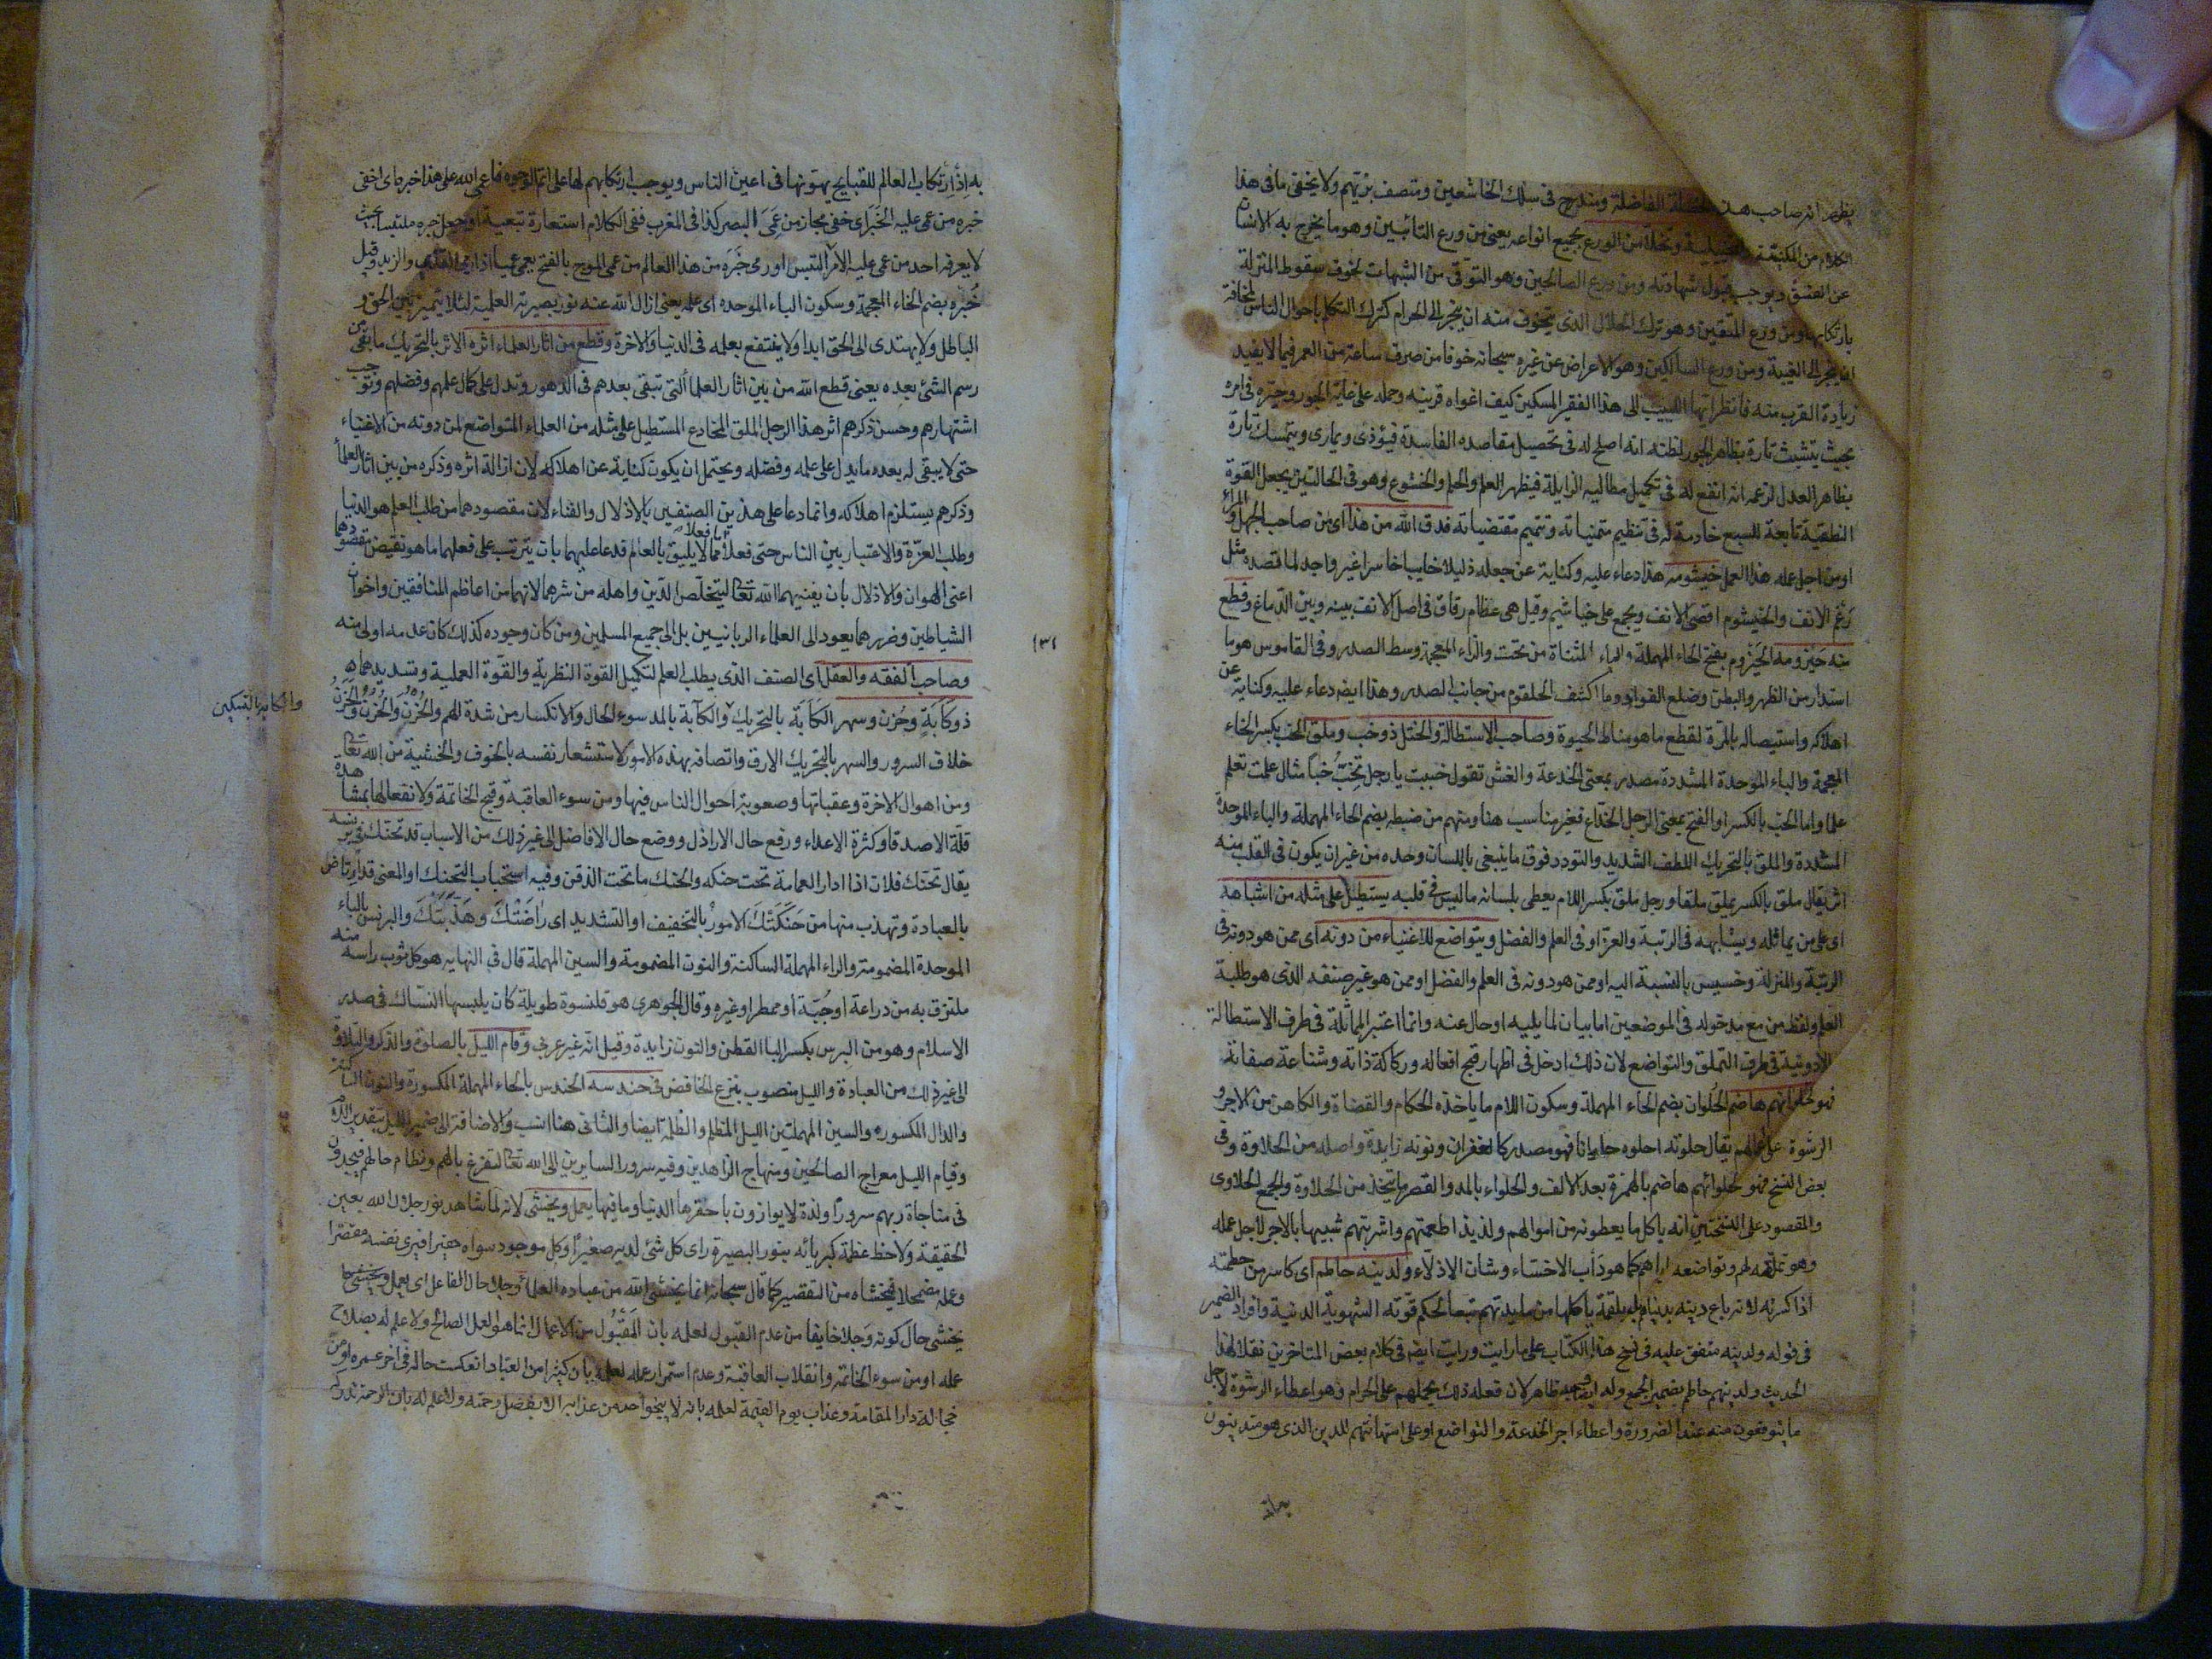 يظهر انه صاحب هذه الخصلة الفاضلة ومندرج في سلك الخاشعين ومتصف بزيهم ولا يخفى ما في هذا
الكلام من المكنية والتخييلية وتخلا من الورع بجميع انواعه يعني من ورع التائبين وهو ما يخرج به الانسان
عن الفسق ويوجب قبول شهادته ومن ورع الصالحين وهو التوقى من الشبهات لخوف سقوط المنزلة
بارتكابها ومن ورع المتقين وهو ترك الحلال الذي يتخوف منه ان ينجر الى الحرام كترك التكلم باحوال الناس لمخافة
ان ينجر الى الغيبة ومن ورع السالكين وهو الاعراض عن غيره سبحانه خوفا من صرف ساعة من العمر فيما لا يفيد
زيادة القرب منه فانظر ايها اللبيب الى هذا الفقير المسكين كيف اغواه قرينه وحمله على غاية الجور وحيّره في امره
بحيث يتشبث تارة بظاهر الجور لظنه انه اصلح له في تحصيل مقاصده الفاسدة فيؤذى ويمارى ويتمسك تارة
بظاهر العدل لزعمه انه انفع له في تكميل مطالبه الزايلة فيظهر العلم والحلم والخشوع وهو في الحالتين يجعل القوة
النطقية تابعة للسبع خادمة له في تنظيم متمنياته وتتميم مقتضياته فدق الله من هذا اى من صاحب الجهل والمراء
او من اجل عمله هذا العمل خيشومه هذا دعاء عليه وكناية عن جعله ذليلا خايبا خاسرا غير واجد لما قصده مثل
رغم الانف والخيشوم اقصى الانف ويجمع على خياشيم وقيل هى عظام رقاق في اصل الانف بينه وبين الدماغ وقطع
منه حيزومه الحيزوم بفتح الحاء المهملة والياء المثناة من تحت والزاء المعجمة وسط الصدر وفي القاموس هو ما
استدار من الظهر والبطن وضلع الفواد وما اكتنف الحلقوم من جانب الصدر وهذا ايضا دعاء عليه وكناية عن
اهلاكه واستيصاله بالمرة لقطع ما هو مناط الحيوة وصاحب الاستطالة والختل ذو خب وملق الخب بكسر الخاء
المعجمة والباء الموحدة المشددة مصدر بمعنى الخدعة والغش تقول خببت يا رجل تخبّ خبا مثال علمت تعلم
علما واما الخب بالكسر او الفتح بمعنى الرجل الخداع فغير مناسب هنا ومنهم من ضبطه بضم الحاء المهملة والباء الموحدة
المشددة والملق بالتحريك اللطف الشديد والتودد فوق ما ينبغي باللسان وحده من غير ان يكون في القلب منه
اثر يقال ملق بالكسر يملق ملقا ورجل ملق بكسر اللام يعطى بلسانه ما ليس في قلبه يستطيل على مثله من اشباهه
اى على من يماثله ويشابهه في الرتبة والعز او في العلم والفضل ويتواضع للاغنياء من دونه اى ممن هو دونه في
الرتبة والمنزلة وخسيس بالنسبة اليه او ممن هو دونه في العلم والفضل او ممن هو غير صنفه الذي هو طلبة
العلم ولفظ من مع مدخوله في الموضعين اما بيان لما يليه او حال عنه وانما اعتبر المماثلة في طرف الاستطالة
الادونية في طرف التملق والتواضع لان ذلك ادخل في اظهار قبح افعاله وركاكة ذاته وشناعة صفاته
فهو لحلوانهم هاضم الحُلوان بضم الحاء المهملة وسكون اللام ما ياخذه الحكام والقضاة والكاهن من الاجر و
الرشوة على اعمالهم يقال حلوته احلوه حلوانا فهو مصدر كالغفران ونونه زايدة واصله من الحلاوة وفي
بعض النسخ فهو لحلوائهم هاضم بالهمزة بعد الالف والحلواء بالمد والقصر ما يتخذ من الحلاوة والجمع الحلاوى
والمقصود على النسختين انه ياكل ما يعطونه من اموالهم ولذيذ اطعمتهم واشربتهم شبيها بالاجر لاجل عمله
وهو تملقه لهم وتواضعه اياهم كما هو دأب الاخساء وشان الاذلاء ولدينه حاطم اى كاسر من حطمته
اذا كسرته لانه باع دينه بدنياهم بل بلقمة ياكلها من مايدتهم تبعا لحكم قوته الشهوية الدنية وافراد الضمير
في قوله ولدينه متفق عليه في نسخ هذا الكتاب على ما رايت ورايت ايضا في كلام بعض المتاخرين نقلا لهذا
الحديث ولدينهم حاطم بضمير الجمع وله ايضا وجه ظاهر لان فعله ذلك يحملهم على الحرام وهو اعطاء الرشوة لاجل
ما يتوقعون منه عند الضرورة واعطاء اجر الخدعة والتواضع او على استهانتهم للدين الذي هو متدينون
به اذ ارتكاب العالم للقبايح يهونها في اعين الناس ويوجب ارتكابهم لها على اتم الوجوه فاعمى الله على هذا خبره اى اخفى
خبره من عمى عليه الخبر اى خفى مجاز من عمى البصر كذا في المغرب ففى الكلام استعارة تبعية او جعل خبره ملتبسا بحيث
لا يعرفه احد من عمى عليه الامر التبس او رمى خبره من هذا العالم من عمى الموج بالفتح يعمى عميا اذا رمى القذى والزبد وقيل
خُبره بضم الخاء المعجمة وسكون الباء الموحده اى علمه يعنى ازال الله عنه نور بصيرته العلمية لئلا يتميز بين الحق و
الباطل ولا يهتدى الى الحق ابدا ولا ينتفع بعلمه في الدنيا والاخرة وقطع من اثار العلماء اثره الاثر بالتحريك ما بقى من
رسم الشئ بعده يعنى قطع الله من بين اثار العلما التى تبقى بعدهم في الدهور وتدل على كمال علمهم وفضلهم وتوجب
اشتهارهم وحسن ذكرهم اثر هذا الرجل الملق المخادع المستطيل على مثله من العلماء المتواضع لمن دونه من الاغنياء
حتى لا يبقى له بعده ما يدل على علمه وفضله ويحتمل ان يكون كناية عن اهلاكه لان ازالة اثره وذكره من بين اثار العلما
وذكرهم يستلزم اهلاكه وانما دعا على هذين الصنفين بالاذلال والفناء لان مقصودهما من طلب العلم هو الدنيا
وطلب العزة والاعتبار بين الناس حتى فعلا افعالا مما لا يليق بالعالم فدعا عليهما بان يترتب على فعلهما ما هو نقيض مقصودهما
اعنى الهوان والاذلال بان يفنيهما الله تعالى ليتخلص الدين واهله من شرهما لانهما من اعاظم المنافقين واخوان
الشياطين وضررهما يعود الى العلماء الربانيين بل الى جميع المسلمين ومن كان وجوده كذلك كان عدمه اولى منه
وصاحب الفقه والعقل اى الصنف الذي يطلب العلم لتكميل القوة النظرية والقوة العملية وتسديدهما
ذو كآبة وحُزن وسهر الكآبة بالتحريك والكآبة بالمد سوء الحال والانكسار من شدة الهم والحُزن والحَزَن
والكابة بالتسكين
خلاف السرور والسهر بالتحريك الارق واتصافه بهذه الامور لاستشعار نفسه بالخوف والخشية من الله تعالى
ومن اهوال الاخرة وعقباتها وصعوبة احوال الناس فيها ومن سوء العاقبة وقبح الخاتمة
قلة الاصدقا وكثرة الاعداء ورفع حال الاراذل ووضع حال الافاضل الى غير ذلك من الاسباب قد تحنك في برنسه
يقال تحنك فلان اذا ادار العمامة تحت حنكه والحنك ما تحت الذقن وفيه استحباب التحنك او المعنى قد ارتاض
بالعبادة وتهذب منها من حَنَكَتْكَ الامور بالتخفيف او التشديد اى راضَتْكَ وهَذَّبَتْكَ والبرنس بالباء
الموحدة المضمومة والراء المهملة الساكنة والنون المضمومة والسين المهملة قال في النهايه هو كل ثوب راسه منه
ملتزق به من دراعة او جُبّة او ممطر او غيره وقال الجوهرى هو قلنسوة طويلة كان يلبسها النساك في صدر
الاسلام وهو من البرس بكسر الباء القطن والنون زايدة وقيل انه غير عربي وقام الليل بالصلوة والذكر والتلاوة
الى غير ذلك من العبادة والليل منصوب بنزع الخافض في حندسه الحندس بالحاء المهملة المكسورة والنون الساكنة
والدال المكسوره والسين المهملتين الليل المظلم والظلمة ايضا والثانى هنا انسب والاضافة الى ضمير الليل بتقدير اللام
وقيام الليل معراج الصالحين ومنهاج الزاهدين وفيه سرور السايرين الى الله تعالى لتفرغ بالهم ونظام حالهم فيجدون
في مناجاة ربهم سرورا ولذة لا يوازون باحقرها الدنيا وما فيها يعمل ويخشى لانه لما شاهد نور جلال الله بعين
الحقيقة ولاحظ عظمة كبريائه بنور البصيرة راى كل شئ لديه صغيرا وكل موجود سواه حقيرا فيرى نفسه مقصرا
وعمله مضمحلا فيخشاه من التقصير كما قال سبحانه انما يخشى الله من عباده العلماء وجلا حال الفاعل اى يعمل ويخشى
يخشى حال كونه وجلا خايفا من عدم القبول لعلمه بان المقبول من الاعمال انما هو العمل الصالح ولا علم له بصلاح
عمله او من سوء الخاتمة وانقلاب العاقبة وعدم استمرار عمله لعلمه بان كثيرا من العباد انعكست حاله في اخر عمره او من
دار المقامة وعذاب يوم القيمة لعلمه بانه لا ينجو احد من عذابه الا بفضل رحمته ولا علم له بان الرحمة تدركه